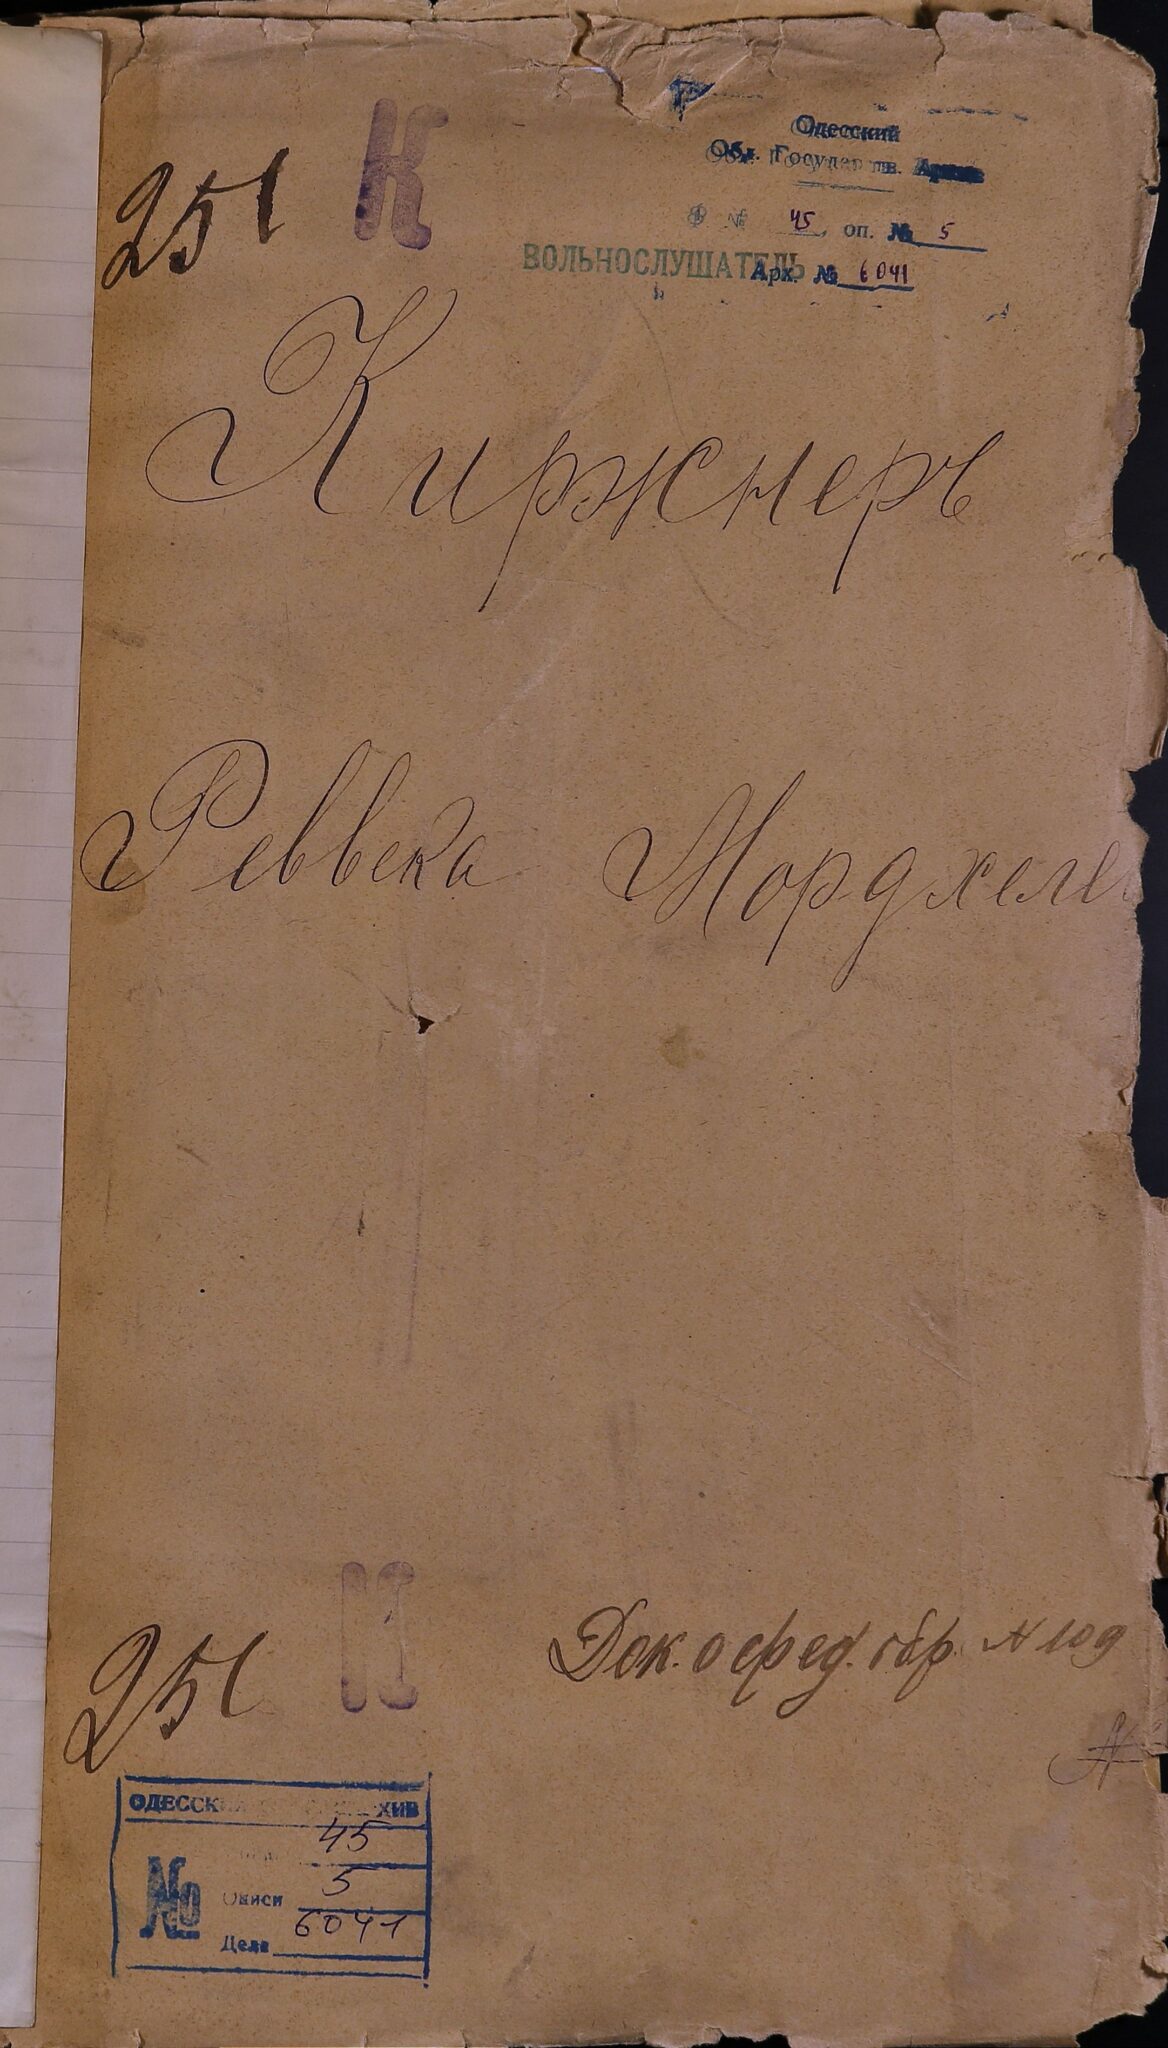 251 К
Одесский
Обл. Государств. Архив
Ф № 45, оп. № 5
ВОЛЬНОСЛУШАТЕЛЬ
Арх. № 6041
Киржнеръ
Реввека Мордхеле
Док. о сред. обр. № 109
251 К
ОДЕССКИЙ АРХИВ
45
№ Описи 5
Дела 6041